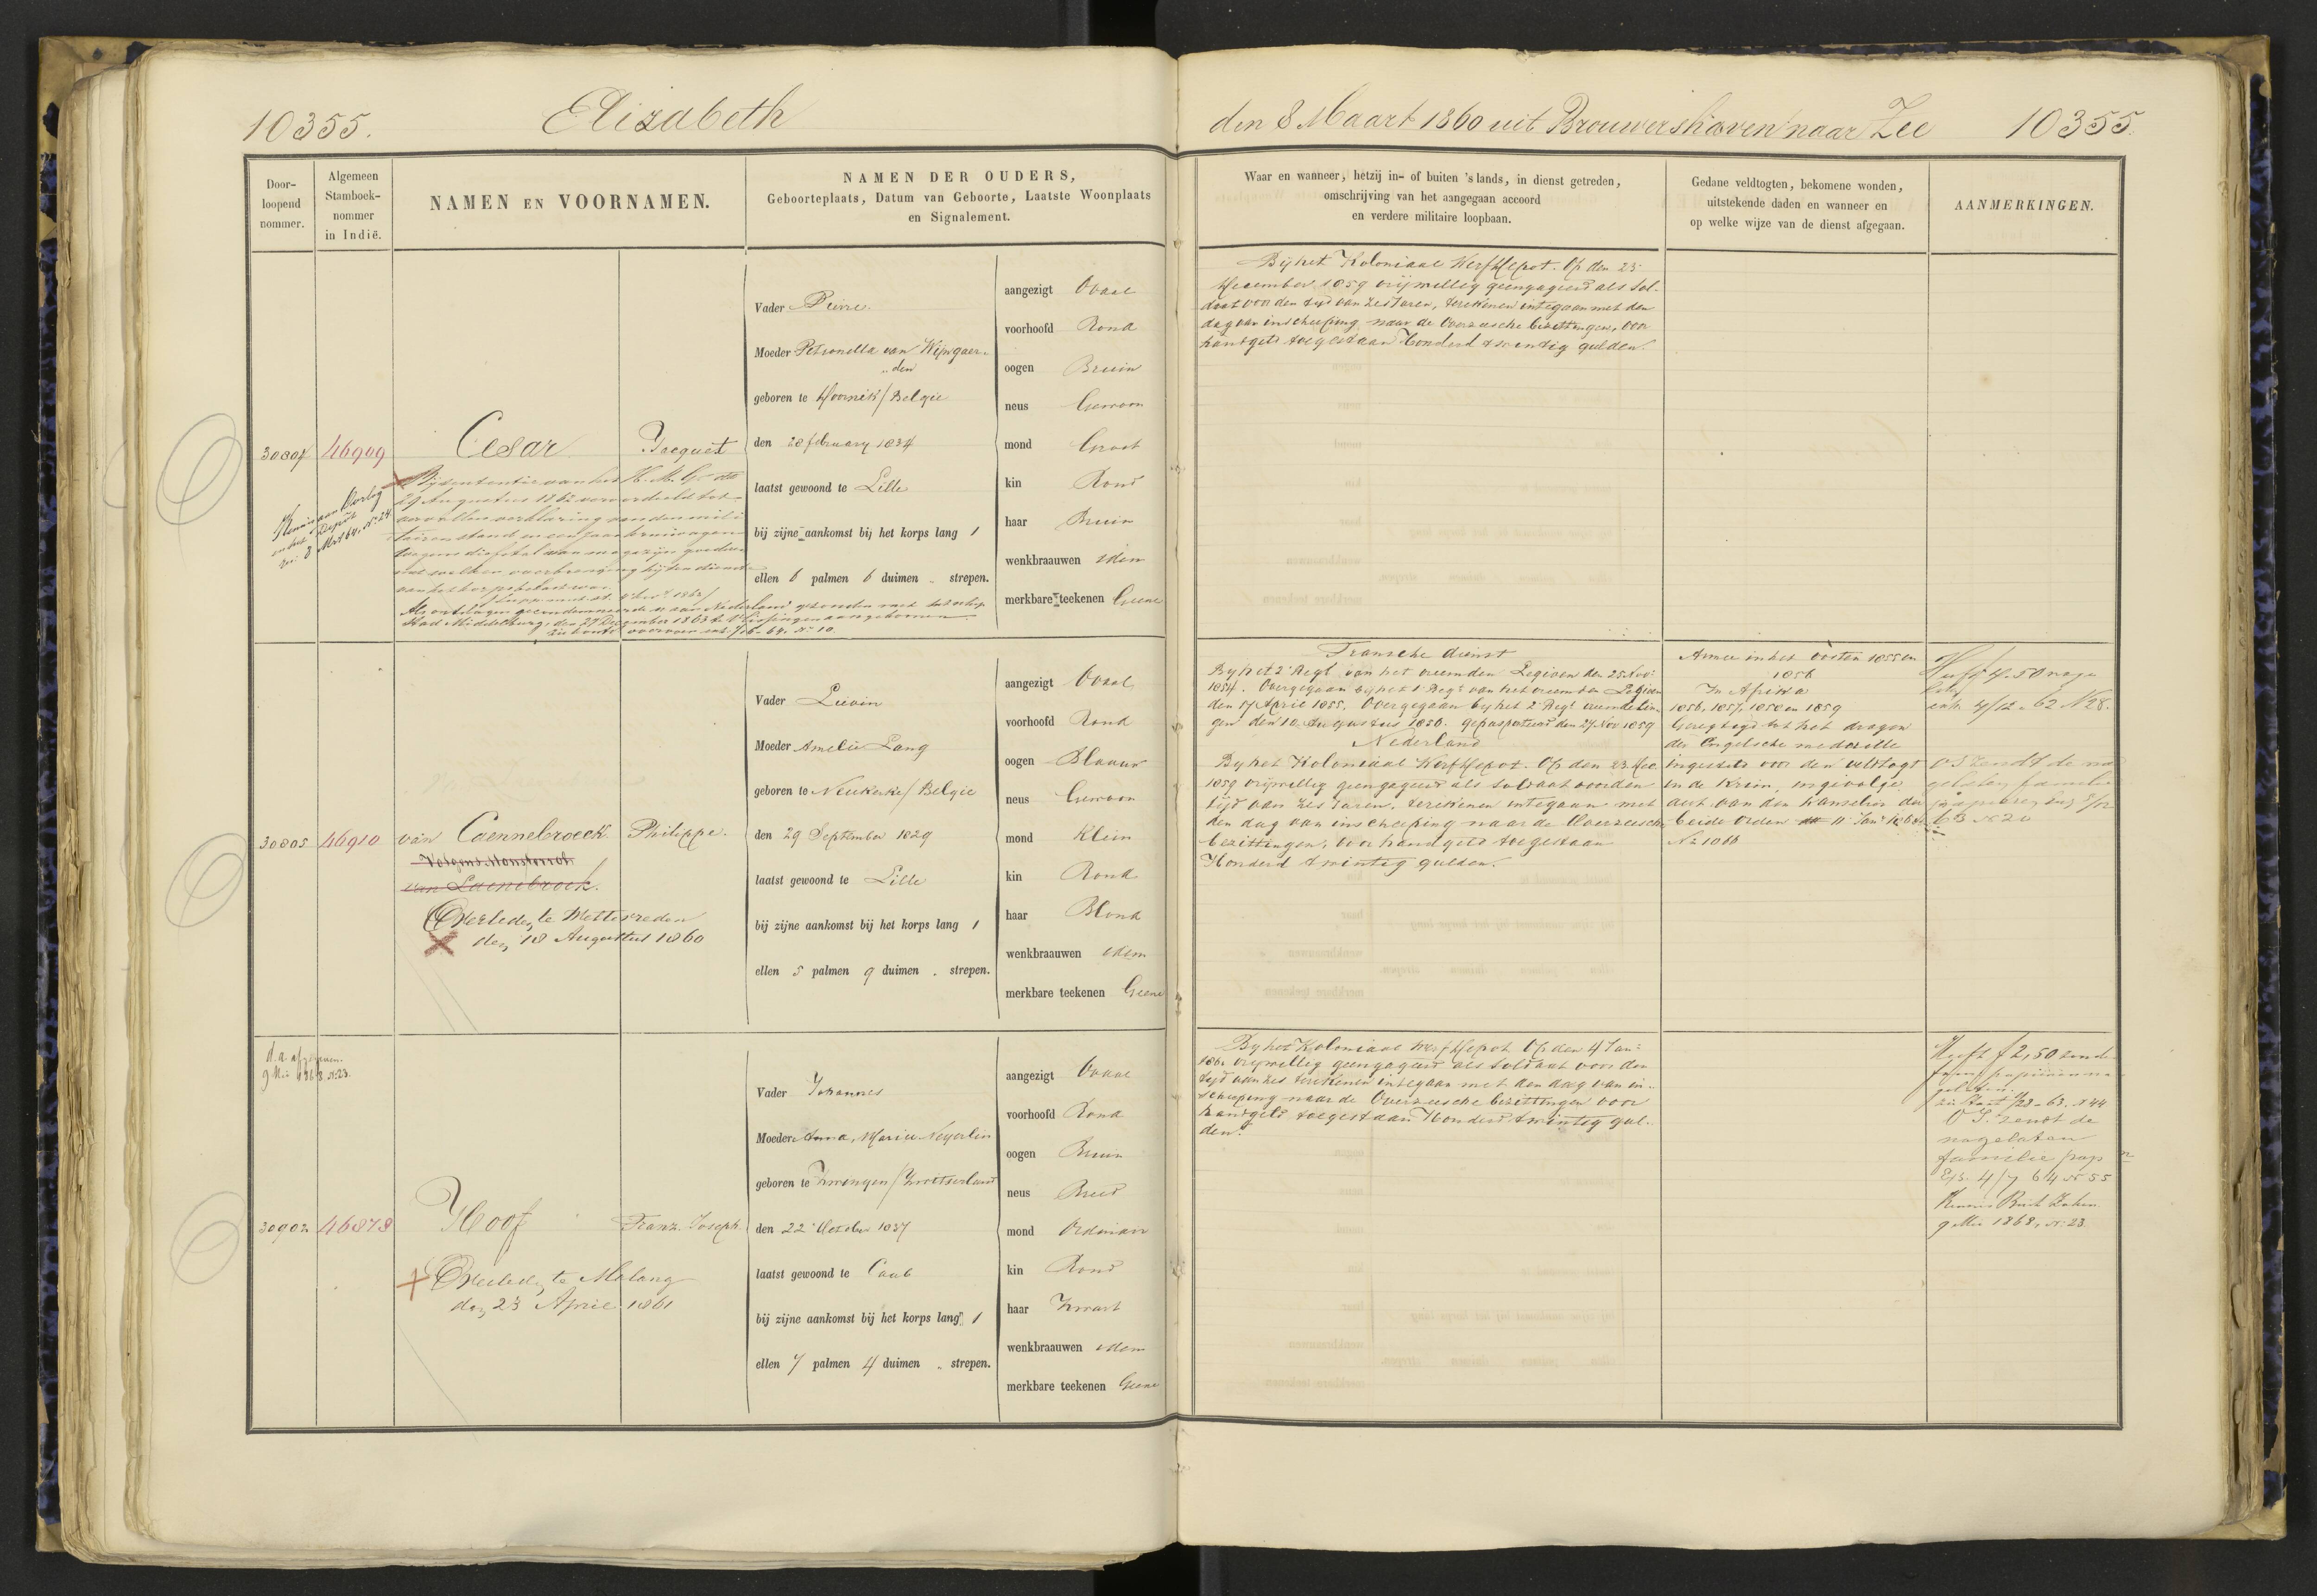 10355.
Elizabeth
den 8 Maart 1860 uit Brouwershaven naar Zee
10355.
Door-
loopend
nommer.
Algemeen
Stamboek-
nommer
in Indië.
NAMEN EN VOORNAMEN.
NAMEN DER OUDERS,
Geboorteplaats, Datum van Geboorte, Laatste Woonplaats
en Signalement.
Waar en wanneer, hetzij in- of buiten 's lands, in dienst getreden,
omschrijving van het aangegaan accoord
en verdere militaire loopbaan.
Gedane veldtogten, bekomene wonden,
uitstekende daden en wanneer en
op welke wijze van de dienst afgegaan.
AANMERKINGEN.
30804
46909
Cesar
Jacquet
Bij sententie van het H. M. G. dd
29 Augustus 1862 veroordeeld tot
vervallen verklaring van den mili
tairen stand en een jaar kruiwagen
wegens diefstal van magazijn goederen
Als ontslagen gecondemneerde naar Nederland gezonden met het schip
Stad Middelburg, den 27 December 1863 te Vlissingen aangekomen
Kennis aan Oorlog
en het Depôt
8 Mrt 64, No. 24
Vader Pierre.
Moeder Petronella van Wijngaer-
„den
geboren te Doornik / Belgie
den 28 february 1834
laatst gewoond te Lille
bij zijne aankomst bij het korps lang 1
ellen 6 palmen 6 duimen „ strepen.
aangezigt Ovaal
voorhoofd Rond
oogen Bruin
neus Gewoon
mond Groot
kin Rond
haar Bruin
wenkbraauwen idem
merkbare teekenen Geene
Bij het Koloniaal Werf Depot. Op den 23
December 1859 vrijwillig geengageerd als Sol-
daat voor den tijd van zes Jaren, te rekenen integaan met den
dag van inscheeping naar de Overzeesche bezittingen, voor
handgeld toegestaan Honderd twintig gulden.
30805
46910
van Caennebroeck
Philippe.
Volgens Monsterrol
van Laenebroek.
Overleden te Weltevreden
den 18 Augustus 1860
Vader Lievin
Moeder Amelie Lang
geboren te Neukerke / Belgie
den 29 September 1829
laatst gewoond te Lille
bij zijne aankomst bij het korps lang 1
ellen 5 palmen 9 duimen . strepen.
aangezigt Ovaal
voorhoofd Rond
oogen Blaauw
neus Gewoon
mond Klein
kin Rond
haar Blond
wenkbraauwen idem
merkbare teekenen Geene
Fransche dienst
By het 2e Regt van het vreemden Legioen den 25 Nov:
1854. Overgegaan by het 1e Regt van het vreemden Legioen
den 17 April 1855. Overgegaan by het 2e Regt vreemdelin-
gen den 10 Augustus 1856. gepasporteerd den 27 Nov 1859
Nederland
By het Koloniaal Werf Depot. Op den 23 Dec
1859 vrijwillig geengageerd als Soldaat voor den
tijd van zes Jaren, te rekenen integaan met
den dag van inscheeping naar de Overzeesche
bezittingen, voor handgeld toegestaan
Honderd twintig gulden.
Armee in het Oosten 1855 en
1856
In Afrika
1856, 1857, 1858 en 1859
Geregtigd tot het dragen
der Engelsche medaille
ingesteld voor den veldtogt
in de Krim, ingevolge
acte van den Kanselier der
beide orden dd 11 Jan: 1860
No 1066
Heeft f 4.50 nage
laten
4/12 - 62 No 28.
O I zendt de na
gelaten familie
papieren
63 No 20
d.a. afgegeven.
9 Mei 1868. No. 23.
30902
46878
Hoof
Franz. Joseph
Overleden te Malang
den 23 April 1861
Vader Johannes
Moeder Anna, Maria Neyerlin
geboren te Zwengen / Zwitserland
den 22 October 1837
laatst gewoond te Caub
bij zijne aankomst bij het korps lang 1
ellen 7 palmen 4 duimen „ strepen.
aangezigt Ovaal
voorhoofd Rond
oogen Bruin
neus Breed
mond Ordinair
kin Rond
haar Zwart
wenkbraauwen idem
merkbare teekenen Geene
By het Koloniaal Werf Depot Op den 4 Jan:
1860 vrijwillig geengageerd als Soldaat voor den
tijd van zes te rekenen integaan met den dag van in-
scheeping naar de Overzeesche bezittingen voor
handgeld toegestaan Honderd twintig gul-
den.
Heeft f 2,50 zonder
fam: papieren na
gelaten.
63. No 44
O I. zendt de
nagelaten
familie pap
4/7 64 No 55
Kennis Buit. Zaken.
9 Mei 1868, No. 23.